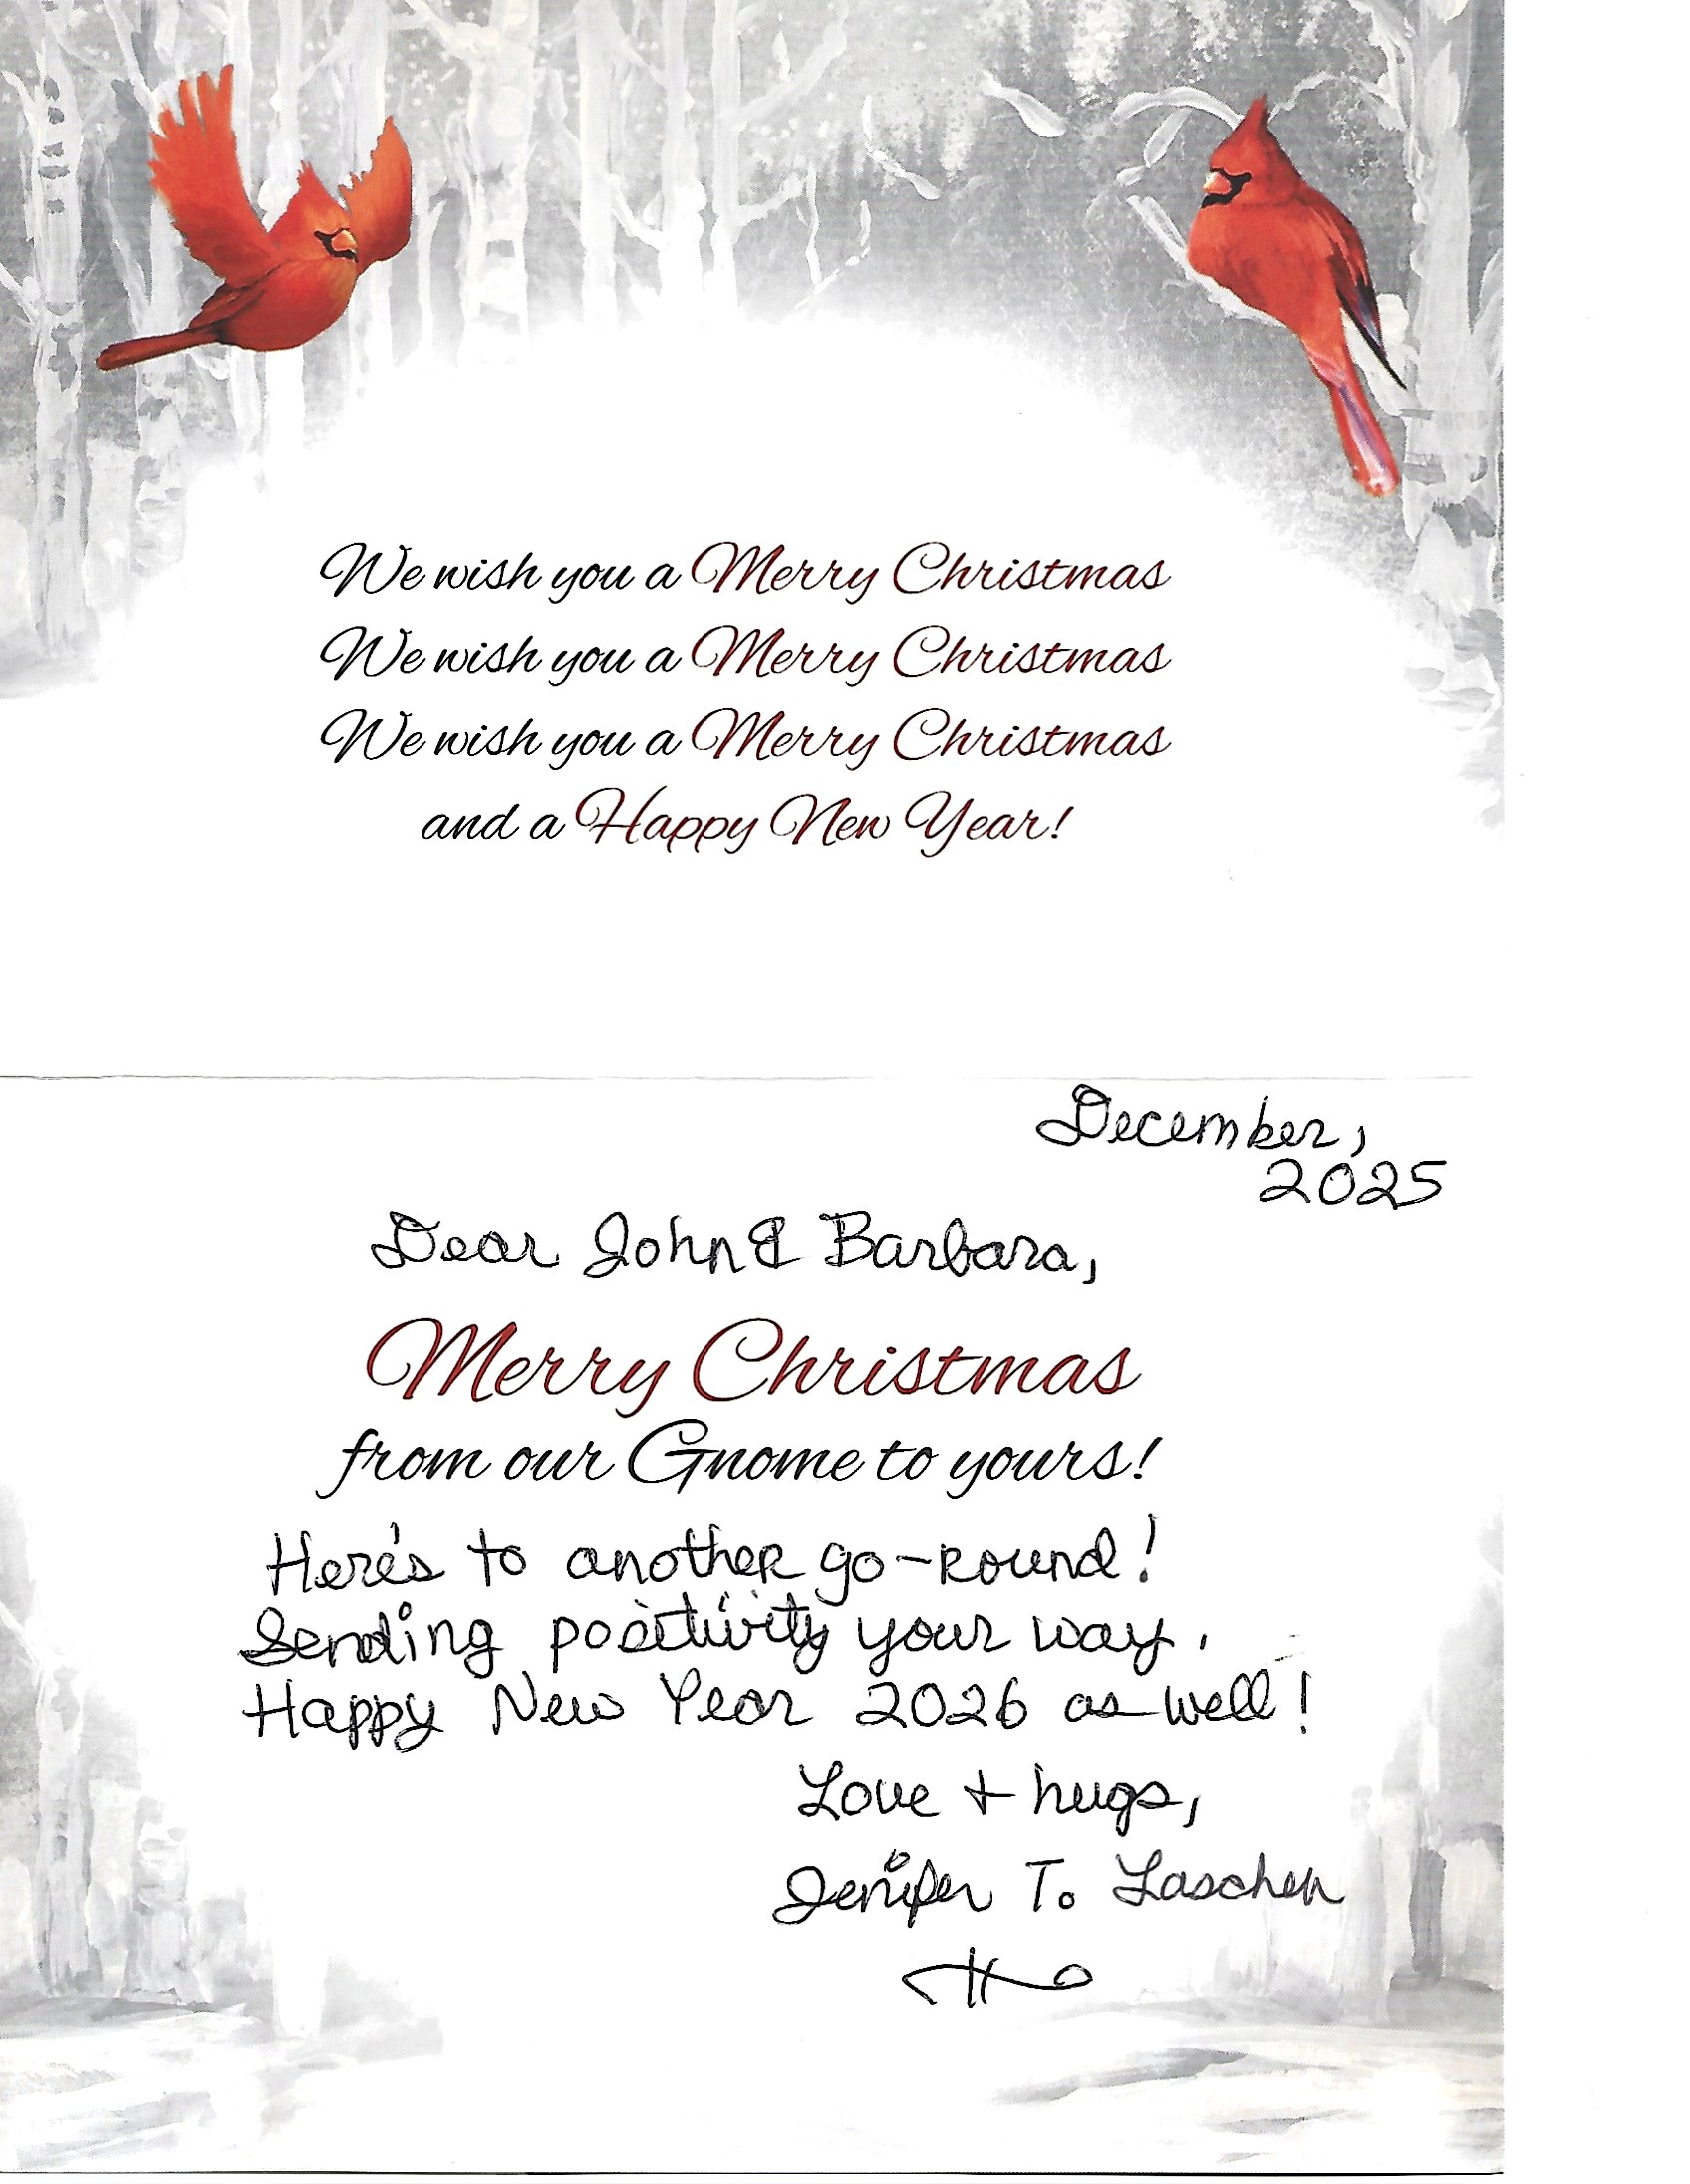 We wish you a Merry Christmas
We wish you a Merry Christmas
We wish you a Merry Christmas
and a Happy New Year!
December,
2025
Dear John & Barbara,
Merry Christmas
from our Gnome to yours!
Here's to another go-round!
Sending positivity your way.
Happy New Year 2026 as well!
Love + hugs,
Jenifer T. Laschen